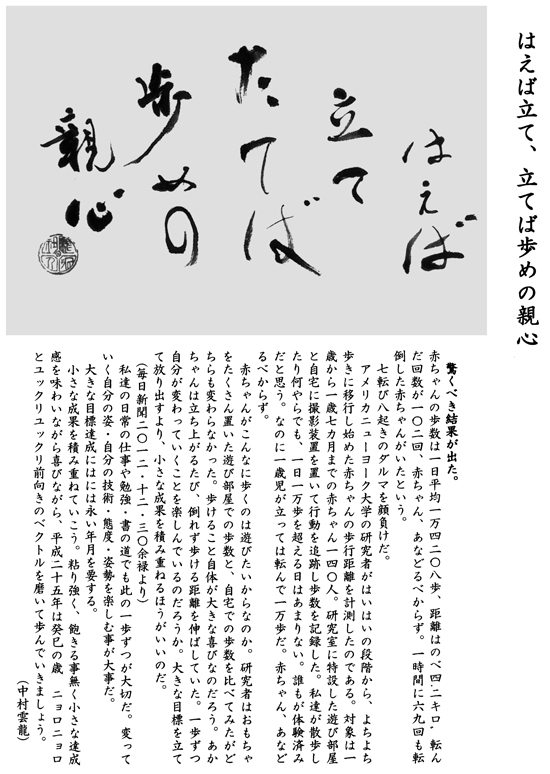 はえば立て、立てば歩めの親心
はえば
立て
たてば
歩めの
親心
驚くべき結果が出た。
赤ちゃんの歩数は一日平均一万四二〇八歩、距離はのべ四.二キロ・転ん
だ回数が一〇二回、赤ちゃん、あなどるべからず。一時間に六九回も転
倒した赤ちゃんがいたという。
七転び八起きのダルマを顔負けだ。
アメリカニューヨーク大学の研究者がはいはいの段階から、よちよち
歩きに移行し始めた赤ちゃんの歩行距離を計測したのである。対象は一
歳から一歳七カ月までの赤ちゃん一四〇人。研究室に特設した遊び部屋
と自宅に撮影装置を置いて行動を追跡し歩数を記録した。私達が散歩し
たり何やらでも、一日一万歩を超える日はあまりない。誰もが体験済み
だと思う。なのに一歳児が立っては転んで一万歩だ。赤ちゃん、あなど
るべからず。
赤ちゃんがこんなに歩くのは遊びたいからなのか。研究者はおもちゃ
をたくさん置いた遊び部屋での歩数と、自宅での歩数を比べてみたがど
ちらも変わらなかった。歩けること自体が大きな喜びなのだろう。あか
ちゃんは立ち上がるたび、倒れず歩ける距離を伸ばしていた。一歩ずつ
自分が変わっていくことを楽しんでいるのだろうか。大きな目標を立て
て放り出すより、小さな成果を積み重ねるほうがいいのだ。
(毎日新聞二〇一二・十二・三〇余禄より)
私達の日常の仕事や勉強・書の道でも此の一歩ずつが大切だ。変って
いく自分の姿・自分の技術・態度・姿勢を楽しむ事が大事だ。
大きな目標達成にはには永い年月を要する。
小さな成果を積み重ねていこう。粘り強く、飽きる事無く小さな達成
感を味わいながら喜びながら、平成二十五年は癸巳の歳　ニョロニョロ
とユックリユックリ前向きのベクトルを磨いて歩んでいきましょう。
(中村雲龍)